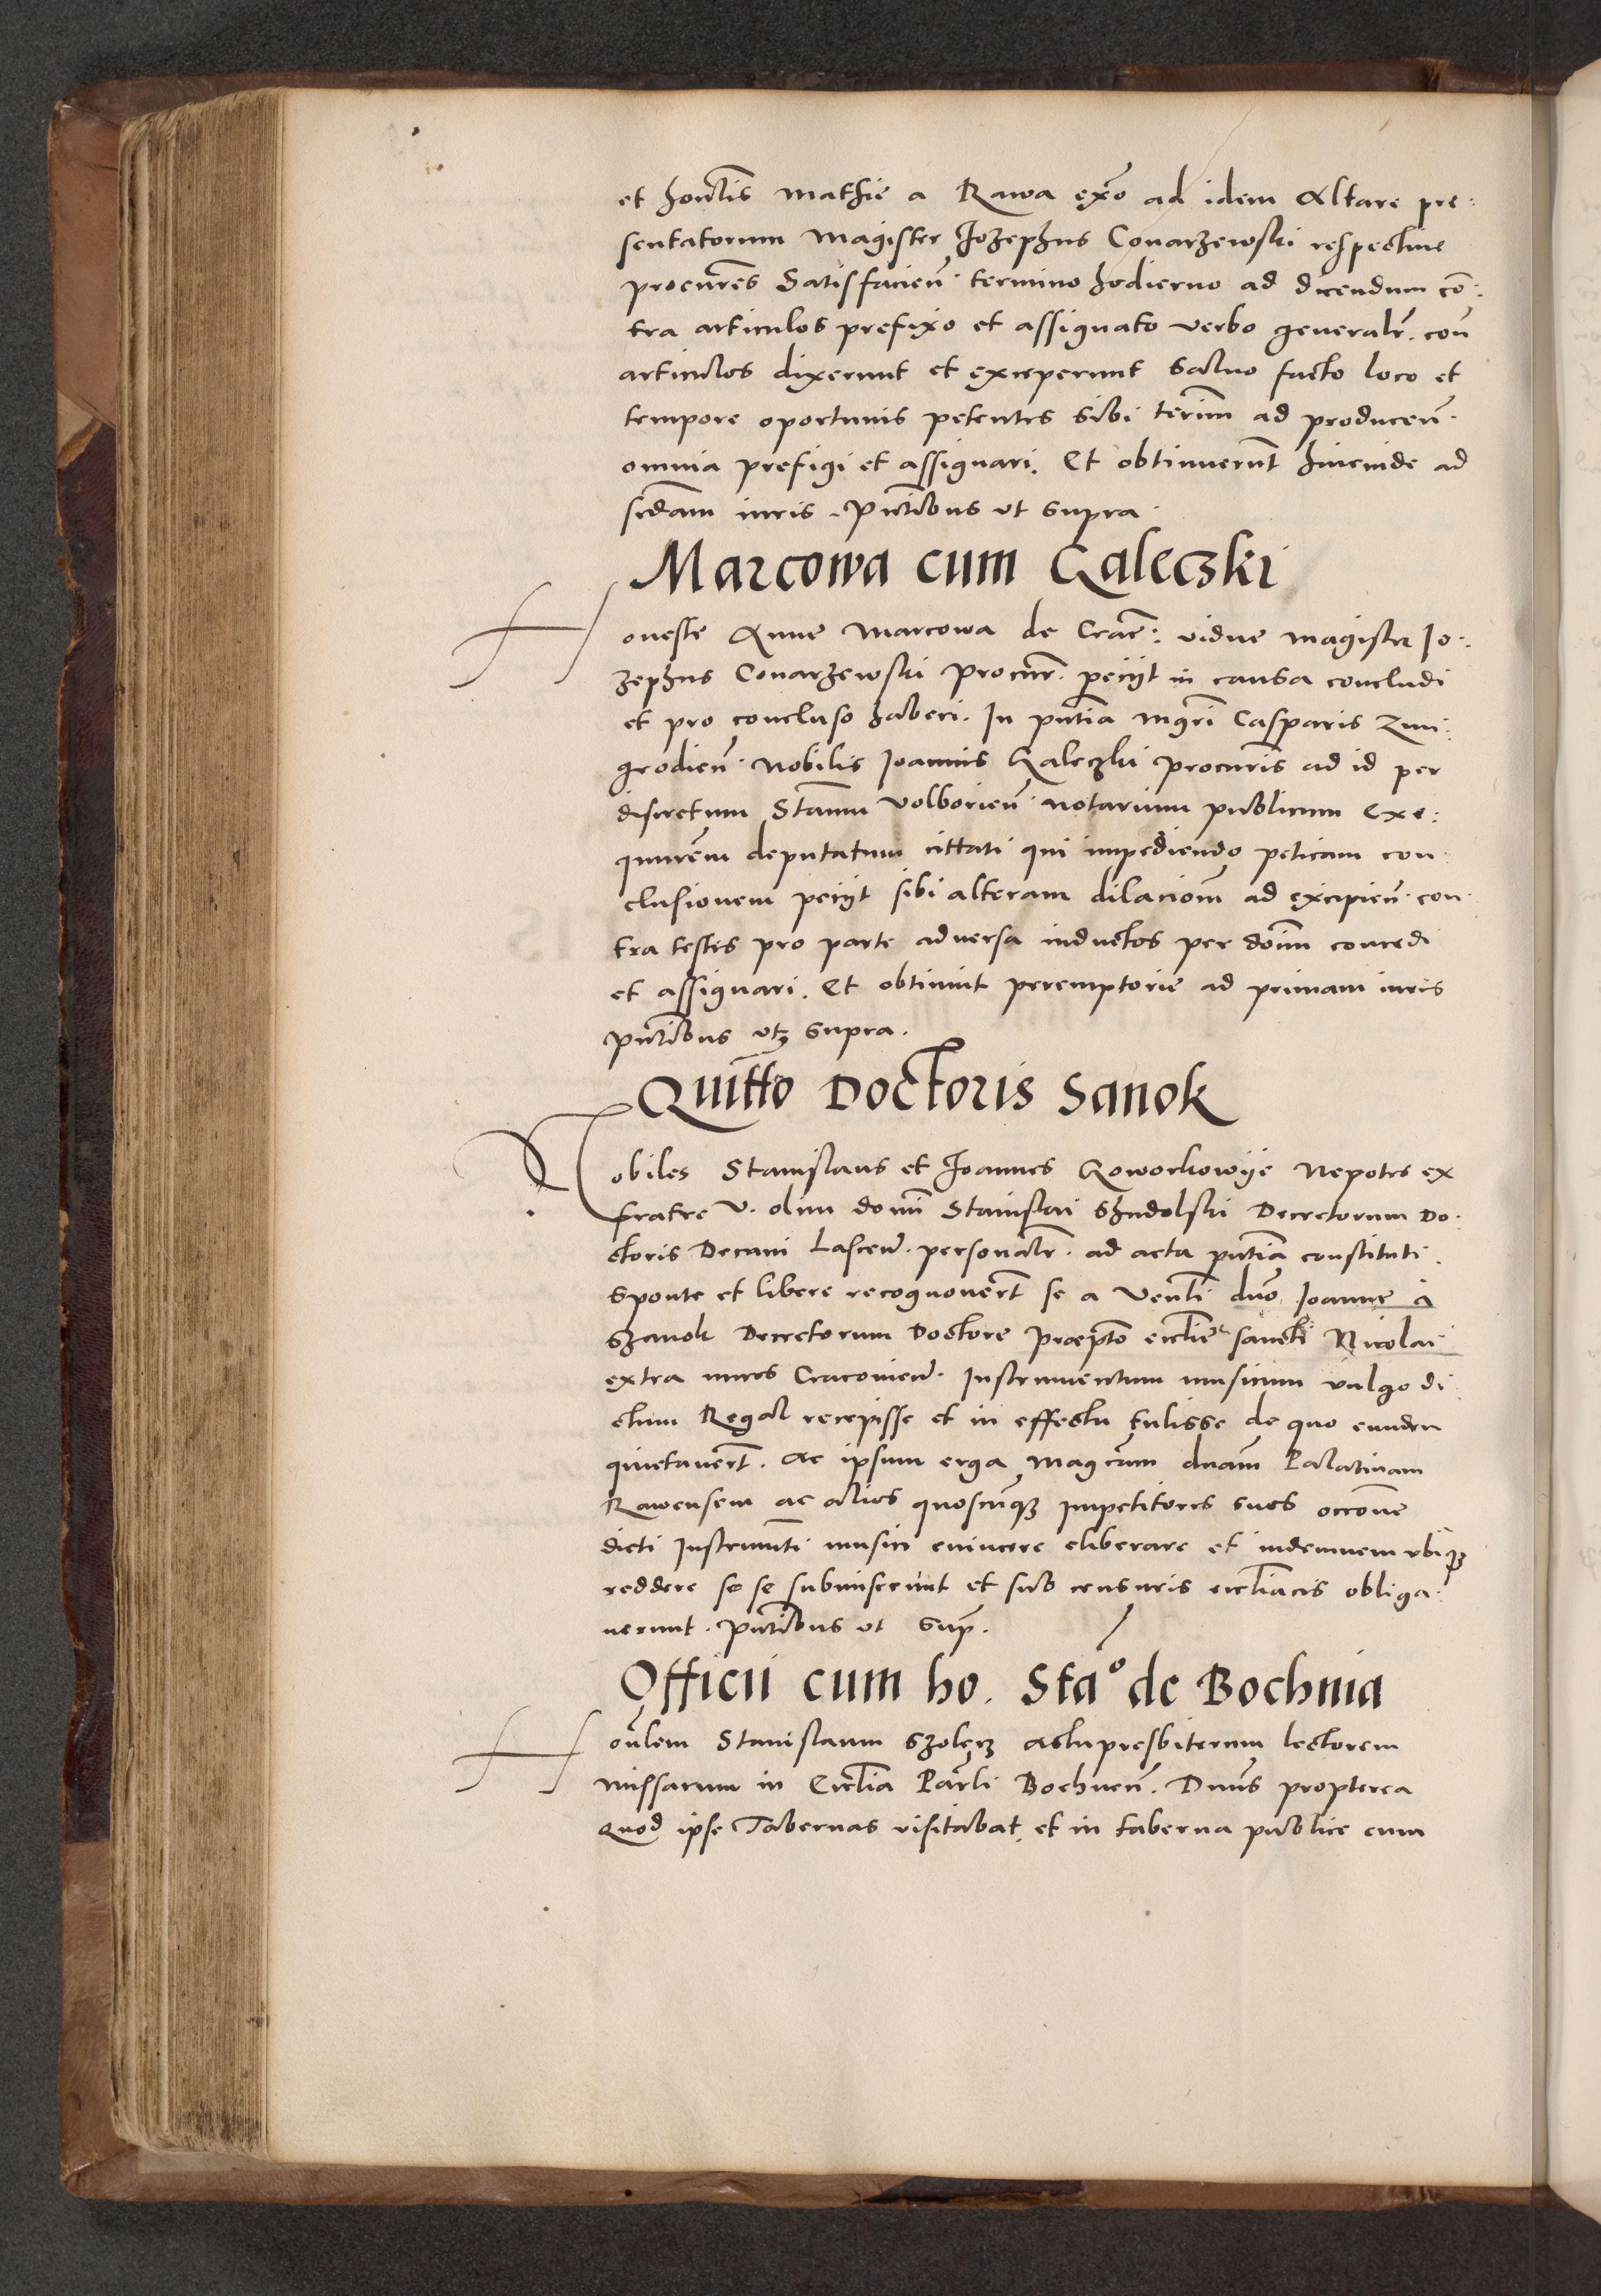 et honẽlis Mathie a Rawa ex͠o ad idem Altare pre:
sentatorum Magister Iozephus Conarzewski respective
procur͠es Satisfacieñ termino hodierno ad dicendum cõ:
tra articulos prefixo et assignato verbo generalr̃. coñ
articulos dixerunt et exceperunt salvo facto loco et
tempore oportunis petentes sibi termĩn ad produceñ.
omnia prefigi et assignari. Et obtinuerũt hincinde ad
scdam̃ iuris. Pñtibus ut supra.
Marcowa cum Galeczki
Honeste Anne Marcowa de Crac̃: vidue Magister Io:
zephus Conarzewski Procur̃. petiit in causa concludi
et pro concluso haberi. In pñtia mgr̃i Casparis Zmi:
grodieñ. Nobilis Ioannis Galeczki procurĩs ad id per
discretum Stañum Volborieñ notarium publicum exe:
qutur̃em deputatum cittati qui impediendo peticam con:
clusionem petiit sibi alteram dilacionẽm ad excipieñ. con:
tra testes pro parte adversa inductos per dom̃m concedi
et assignari. Et obtinuit peremptorie ad primam iuris
pñtibus utq supra.
Quitt̃o Doctoris Sanok
Nobiles Stanislaus et Ioannes Goworkowije Nepotes ex
fratre V. olim domĩ Stanislai Szudolski Decretorum Do:
ctoris Decani Lascieñ. personalr̃. ad acta pñtia constituti.
Sponte et libere recognovert̃ se a Venlĩ dño Ioanne à
Szanok Decretorum Doctore Præpt̃o ecclie sancti Nicolai
extra muros Cracovieñ. Instrumentum musicum vulgo di:
ctum Regal recepisse et in effectu tulisse de quo eundem
quietavert̃. Ac ipsum erga Magcam̃ dnam̃ Palatinam
Rawensem ac alios quoscũq impetitores suos occõne
dicti Instrumt̃i musici evincere eliberare et indemnem ubiq
reddere se se submiserunt et sub censuris ecclĩacis obliga:
verunt. Pñtibus ut sup̃.
Officii cum ho. Sta° de Bochnia
Hoñlem Stanislaum Szolęcz actupresbiterum lectorem
missarum in Ecclĩa Par̃li Bochneñ. Dnũs propterea
quod ipse Tabernas visitabat, et in taberna publice cum